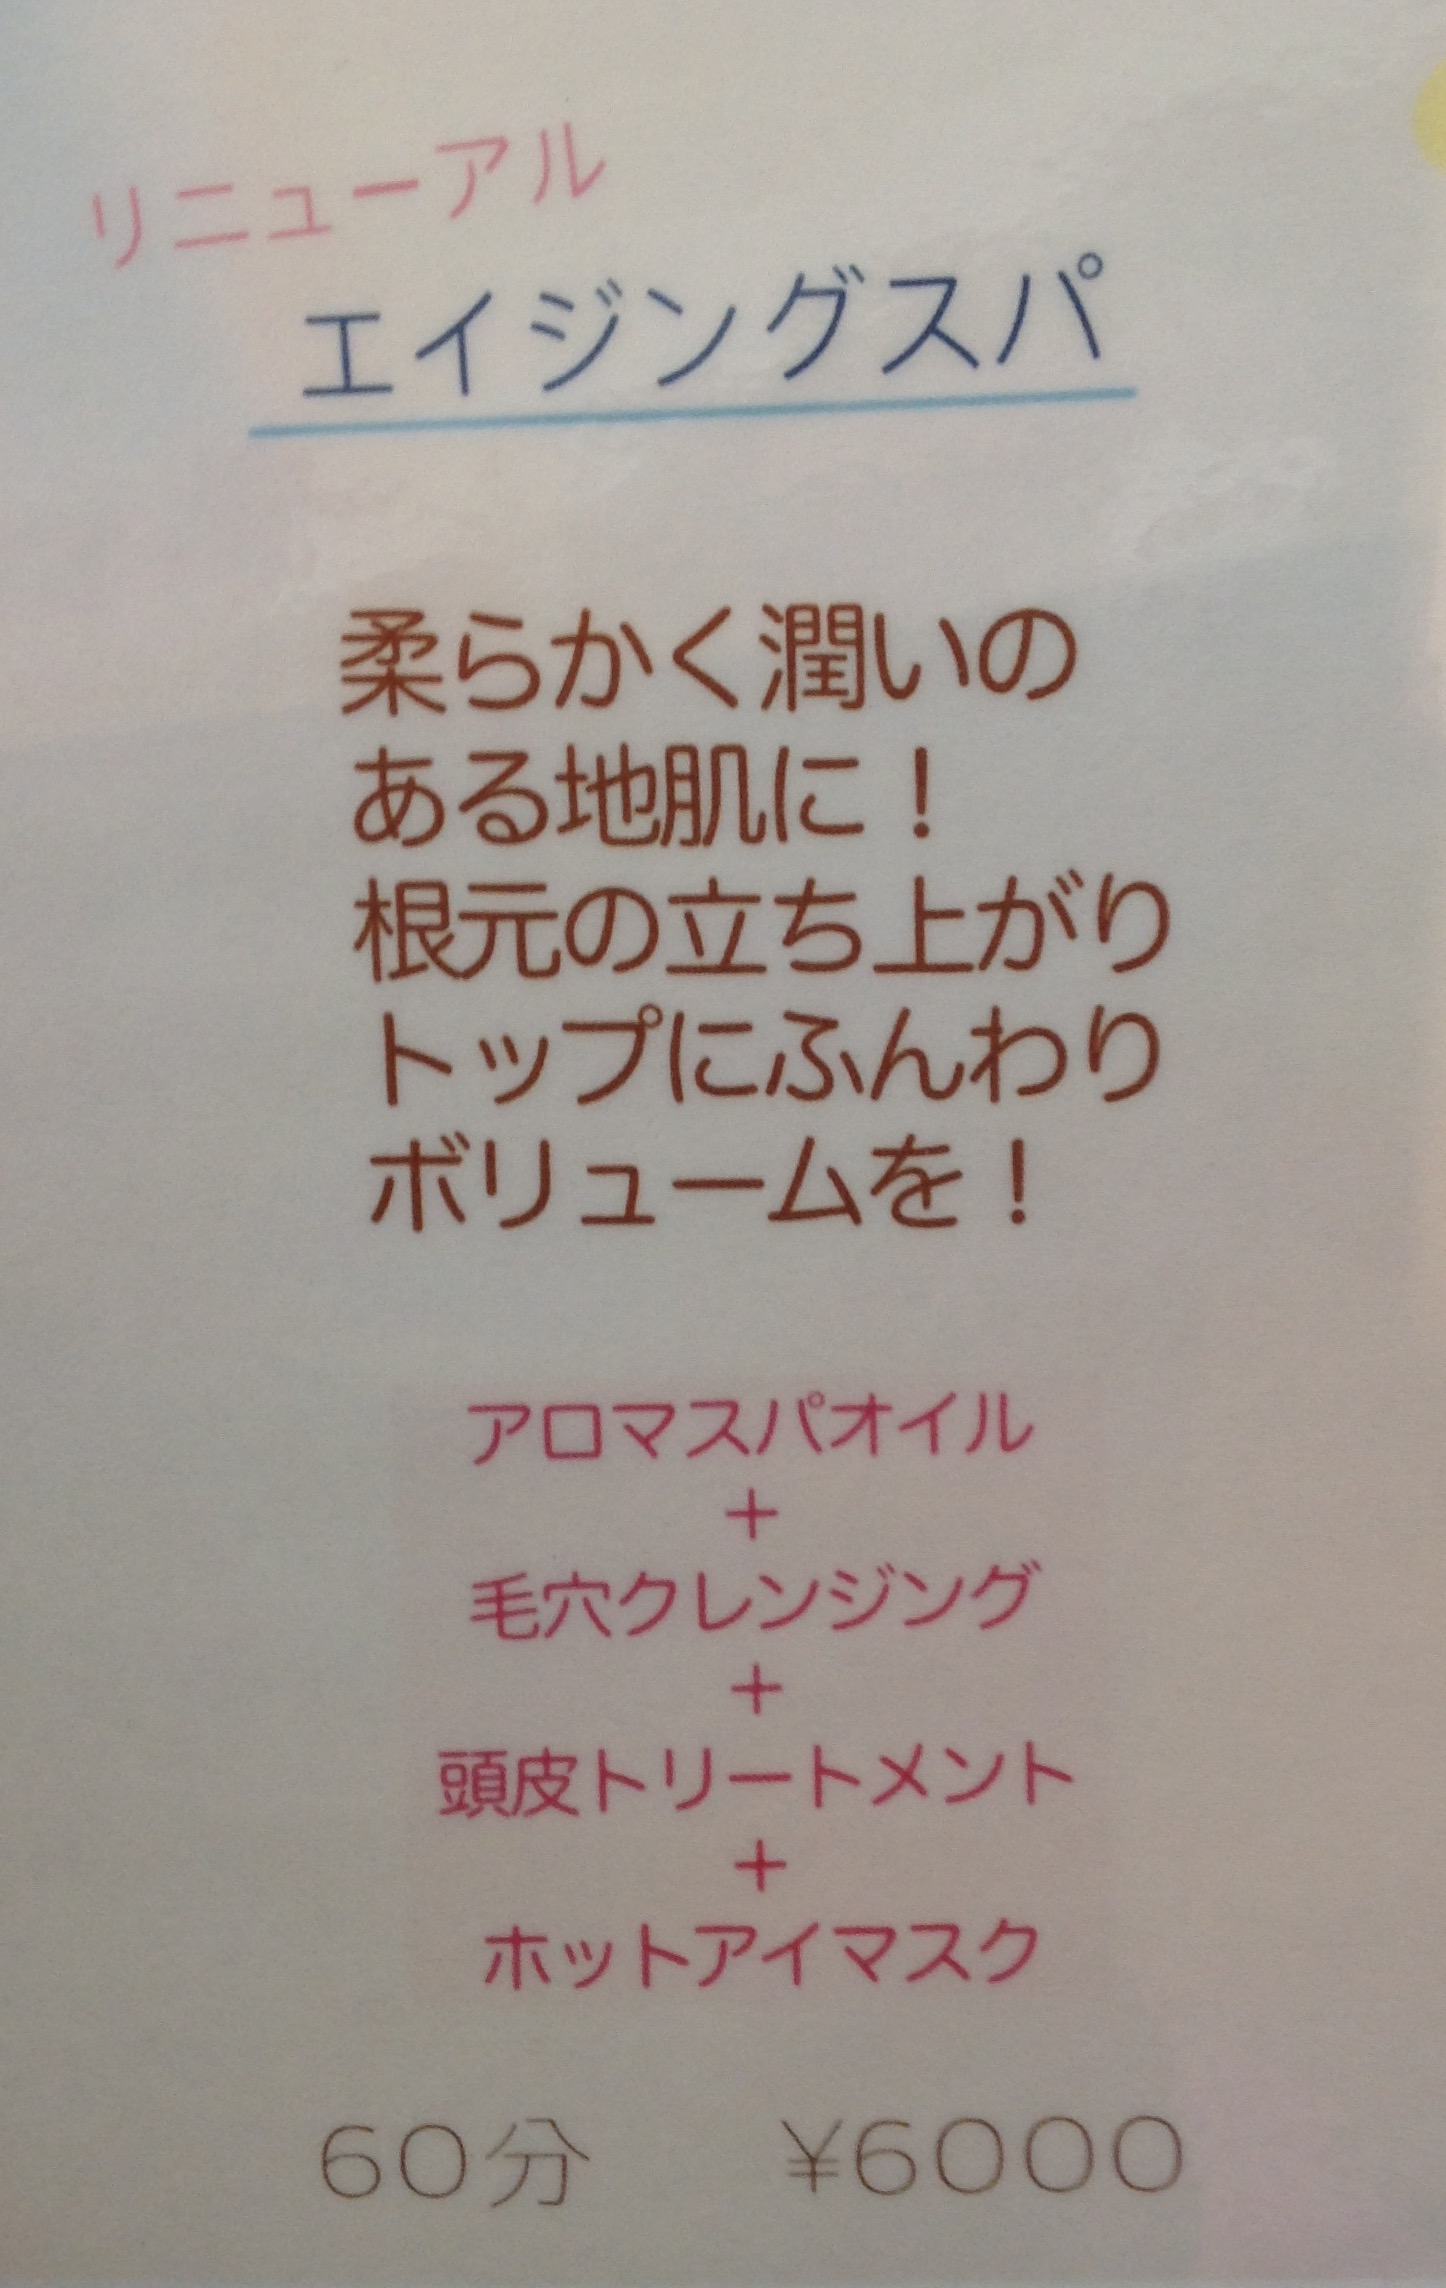 リニューアル
エイジングスパ
柔らかく潤いの
ある地肌に！
根元の立ち上がり
トップにふんわり
ボリュームを！
アロマスパオイル
+
毛穴クレンジング
+
頭皮トリートメント
+
ホットアイマスク
60分 ¥6000